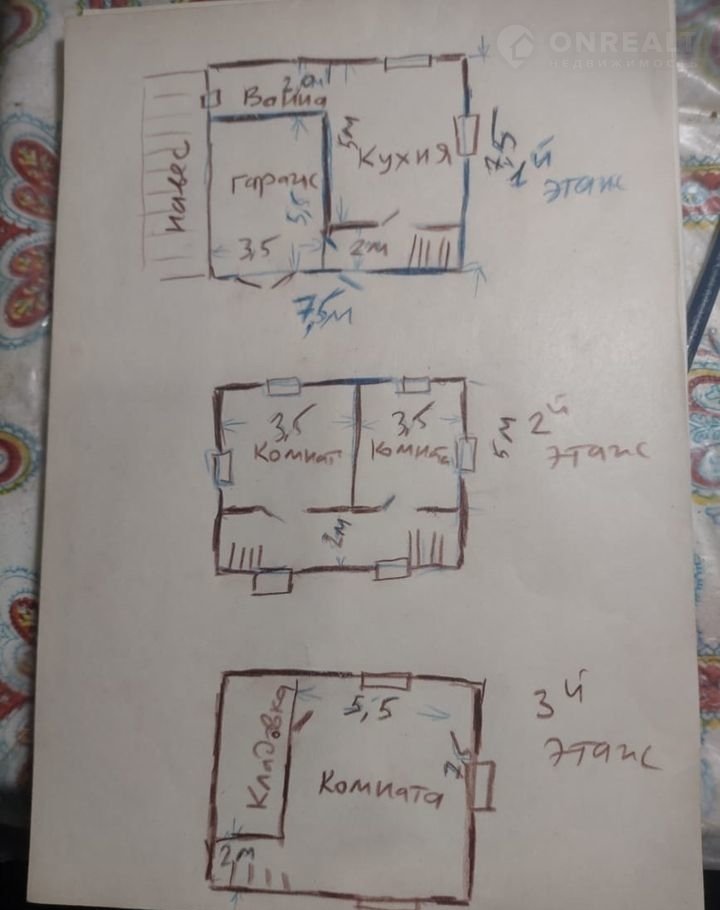 ONREALT
НЕДВИЖИМОСТЬ
2,0м
Ванна
5м
Кухня
7,5
1й
этаж
навес
гараж
5,5
3,5
2м
7,5м
3,5
Комнат
3,5
Комната
5м
2й
этаж
2м
Кладовка
5,5
3й
этаж
7,5
Комната
2м